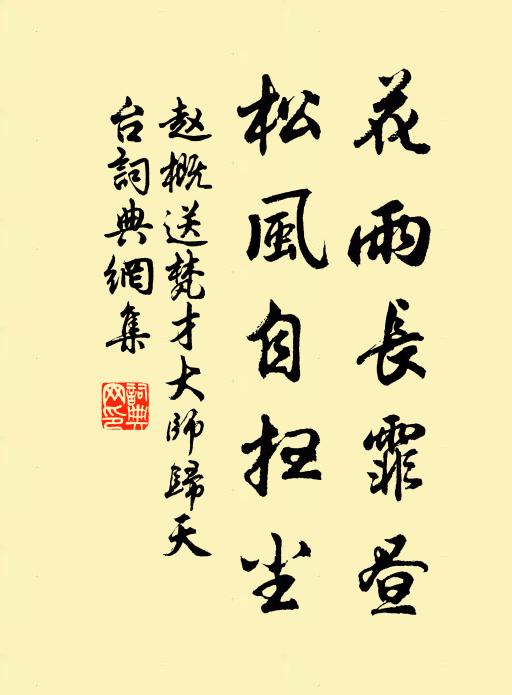 花雨長霏昼
松風自扫尘
赵概送梵才大师歸天
台詞典網集
詞典
网印